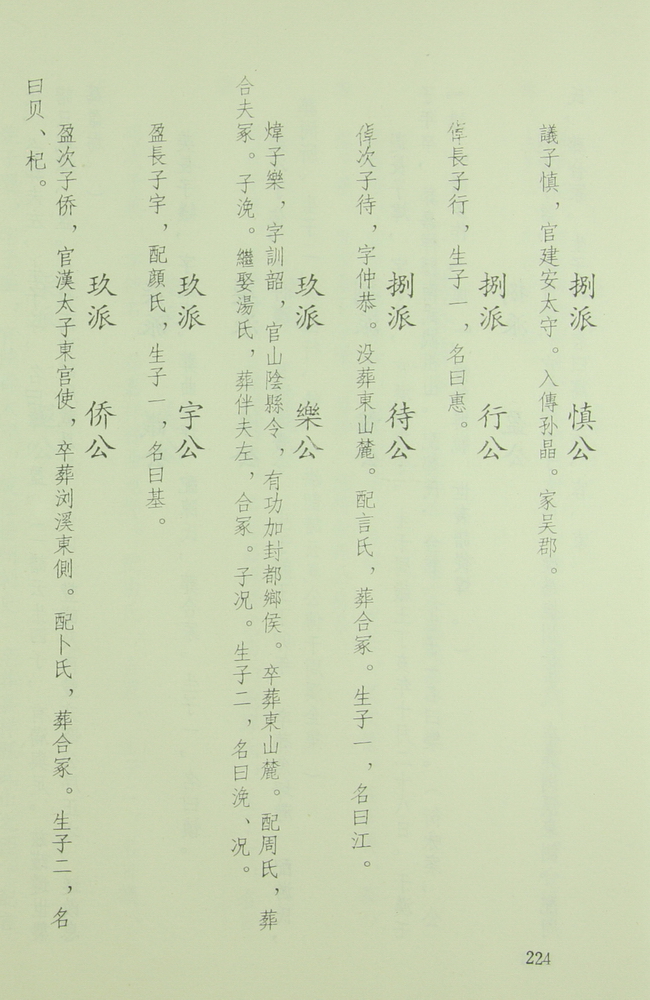 捌派　慎公
議子慎，官建安太守。入傳孙晶。家吴郡。
捌派　行公
倬長子行，生子一，名曰惠。
捌派　待公
倬次子待，字仲恭。没葬東山麓。配言氏，葬合冢。生子一，名曰江。
玖派　樂公
煒子樂，字訓韶，官山陰縣令，有功加封都鄉侯。卒葬東山麓。配周氏，葬
合夫冢。子浼。繼娶湯氏，葬伴夫左，合冢。子况。生子二，名曰浼、况。
玖派　宇公
盈長子宇，配顔氏，生子一，名曰基。
玖派　侨公
盈次子侨，官漢太子東宫使，卒葬浏溪東側。配卜氏，葬合冢。生子二，名
曰贝、杞。
224